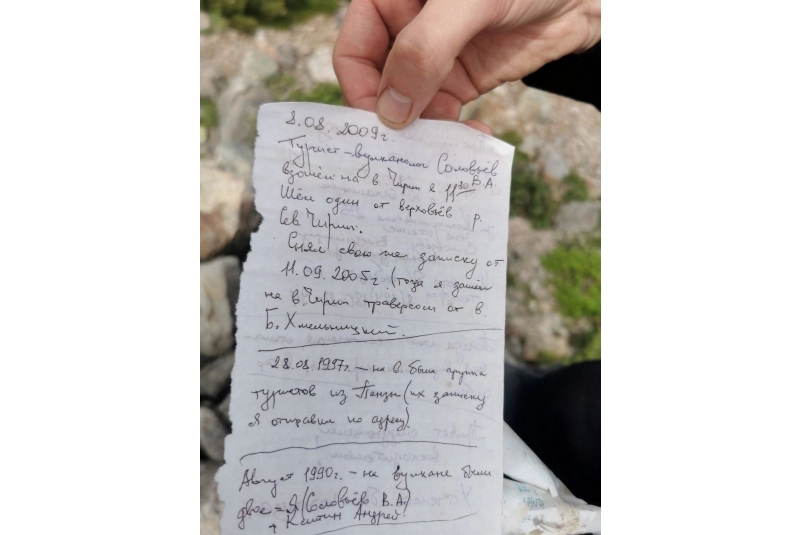 8.08.2009г.
Турист-вулканолог Соловьёв
взошёл на в. Чирип в 11³⁰ В.А.
Шёл один от верховьев р.
Сев. Чирип.
Снял свою же записку от
11.09.2005г. (тогда я зашёл
на в. Чирип траверсом от в.
Б. Хмельницкий.
28.08.1997г. – на в. была группа
туристов из Пензы (их записку
я отправил по адресу).
Август 1990г. – на вулкане были
двое = Я (Соловьёв В.А.)
+ Андрей